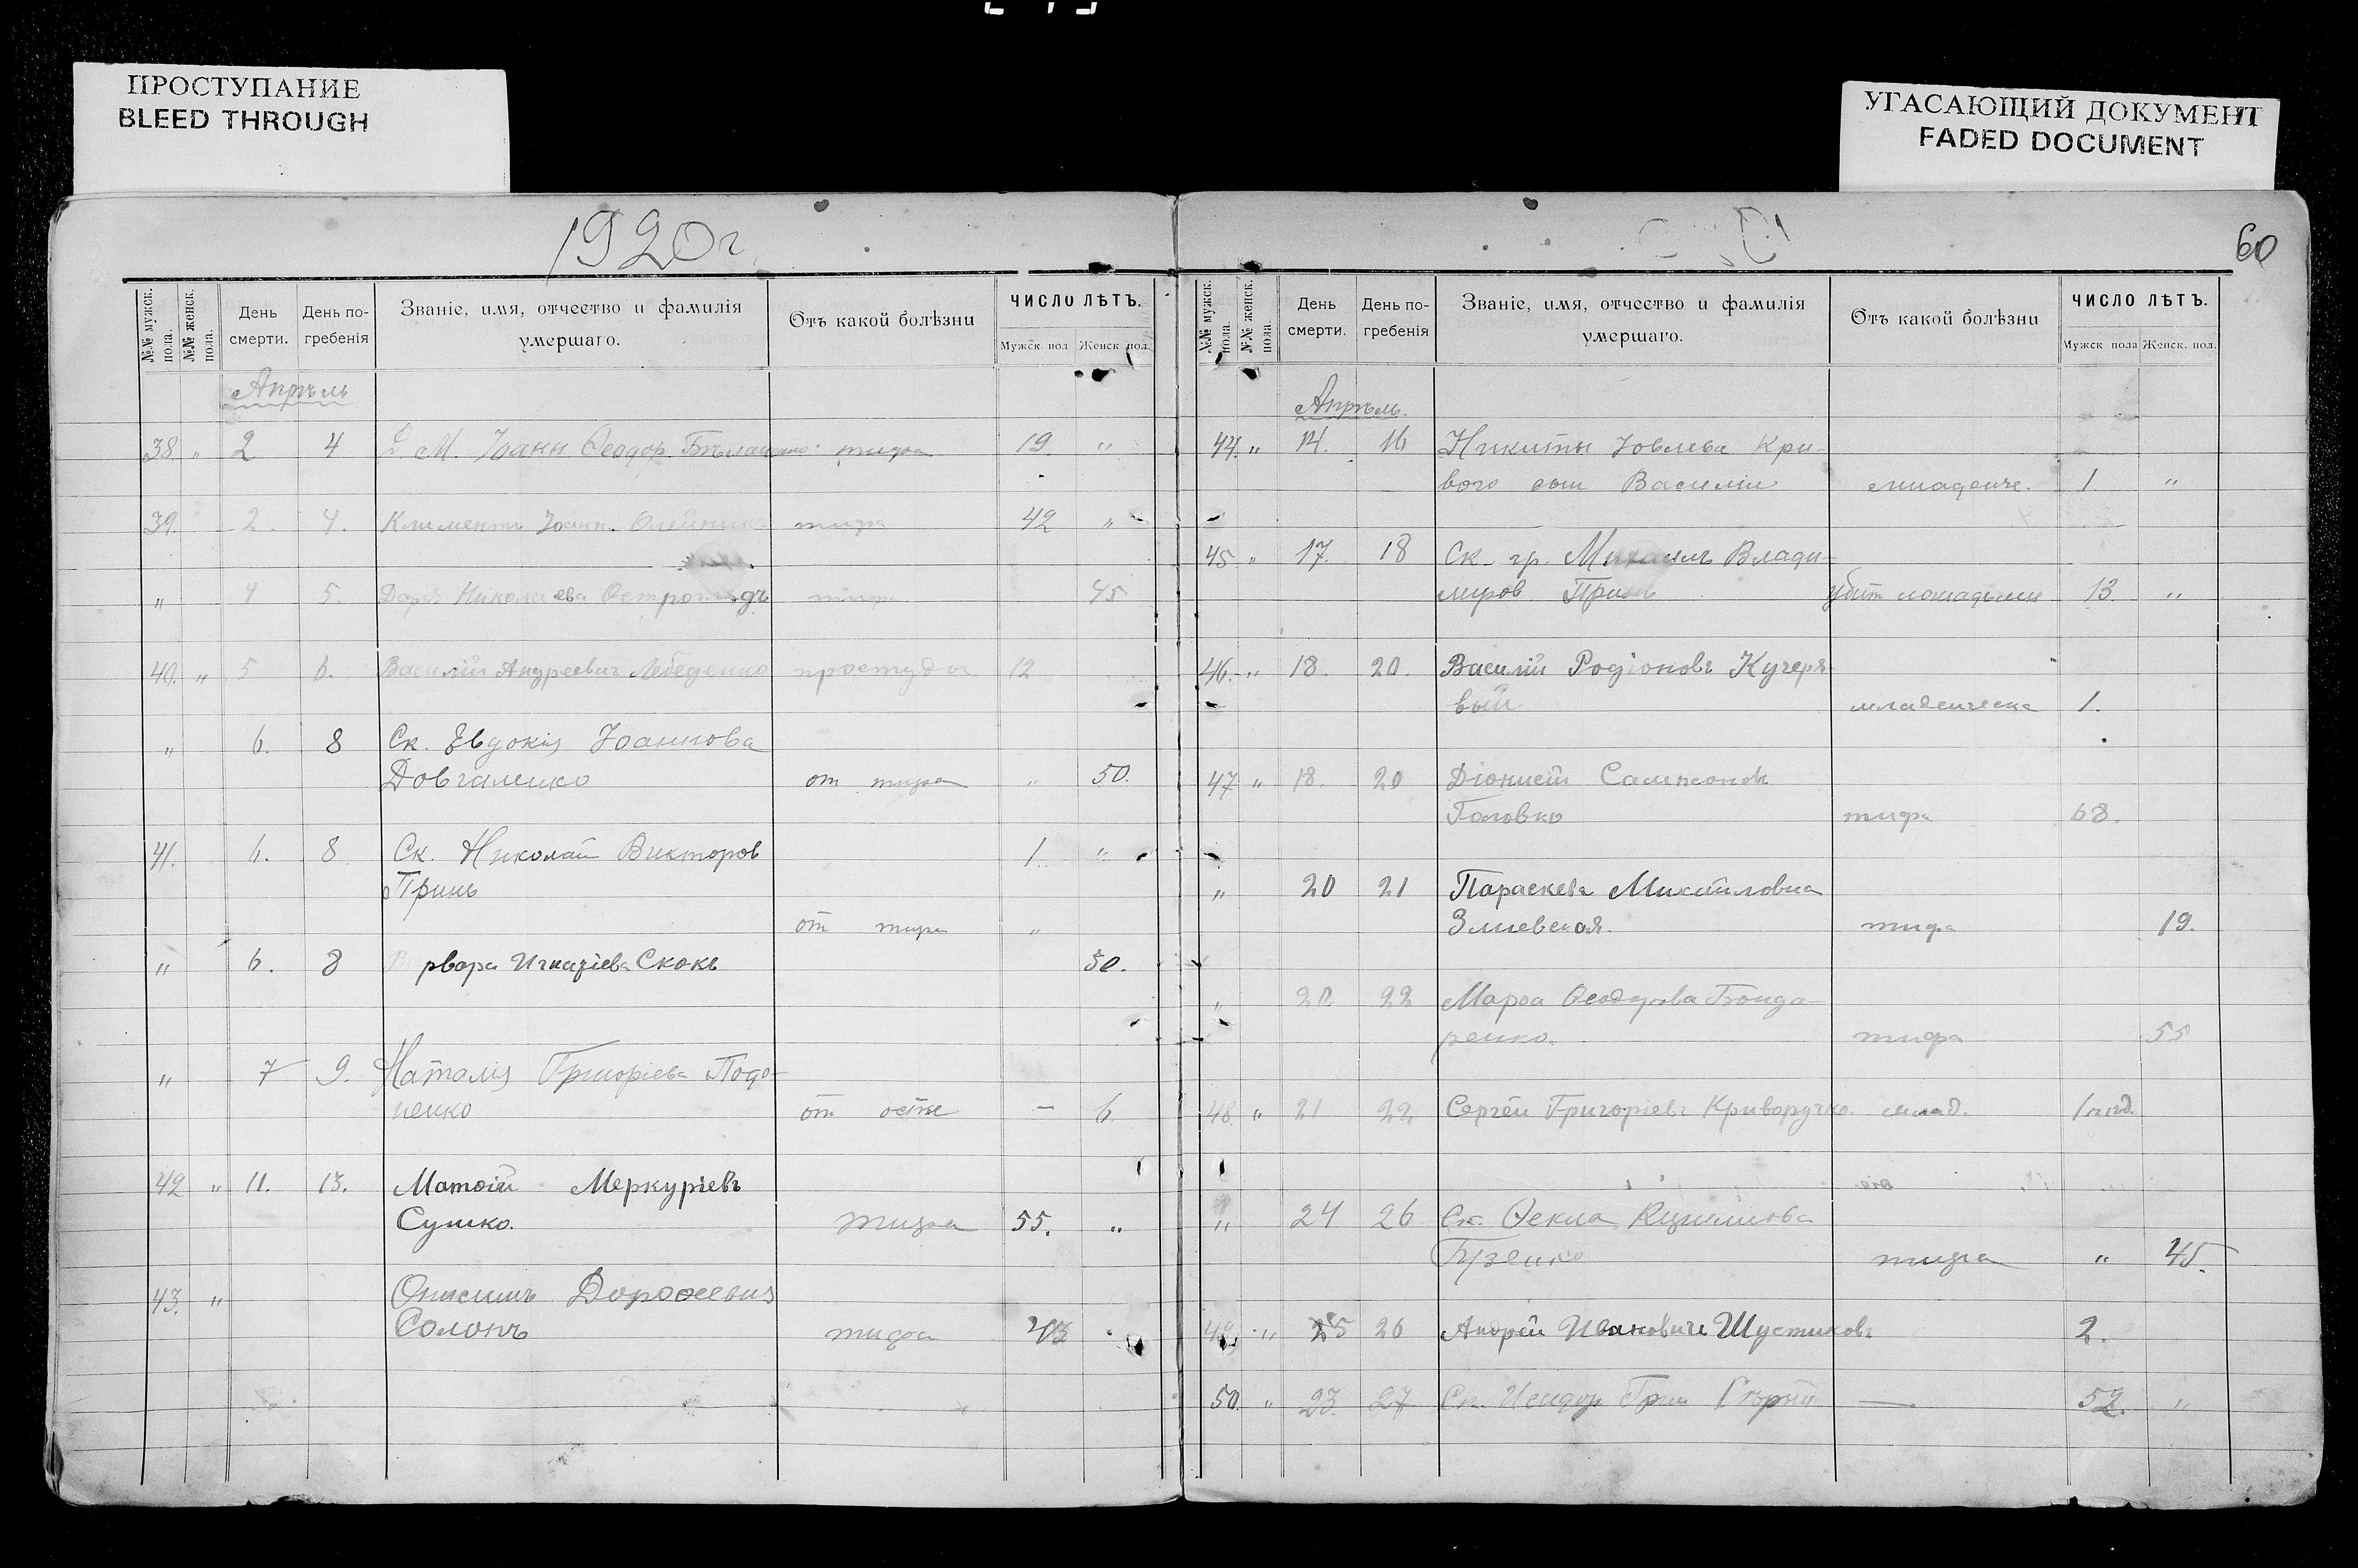 ПРОСТУПАНИЕ
BLEED THROUGH
УГАСАЮЩИЙ ДОКУМЕНТ
FADED DOCUMENT
1920 г.
№№ мужск. пола.
№№ женск. пола.
День смерти.
День по-
гребенія
Званіе, имя, отчество и фамилія
умершаго.
Отъ какой болѣзни
ЧИСЛО ЛѢТЪ.
Мужск. пол
Женск. пол.
Апрѣль
38. " 2 4 М. Іоанн Ѳеодор. тифа 19 "
39. 2. 4. Климентъ Іоанн. тифа 42 "
" 4 5. Николаева тифа 45
40. " 5 6. Василій Андреевич Лебеденко простуды 12
" 6. 8 Ск. Евдокія Іоаннова
Довгаленко от тифа " 50.
41. 6. 8 Ск. Николай Викторов 1. "
Гринь
от тифа "
" 6. 8 Варвара Игнатіева Скокъ 50.
" 7 9. Наталія Григоріева
ненко от оспы — 6.
42 " 11. 13. Матѳій Меркуріевъ
Сушко. тифа 55. "
43. " Онисимъ
Солопъ тифа 43
60
№№ мужск. пола.
№№ женск. пола.
День смерти.
День по-
гребенія
Званіе, имя, отчество и фамилія
умершаго.
Отъ какой болѣзни
ЧИСЛО ЛѢТЪ.
Мужск пола
Женск. пол.
Апрѣль.
44. " 14. 16 Никиты Іовлева Кри-
вого сын Василій младенче. 1. "
45. " 17. 18 Ск. гр. Михаилъ Влади-
миров Гринь убит лошадьми 13. "
46. " 18. 20. Василій Родіоновъ Кучеря-
вый младенческа 1.
47 " 18. 20 Діонисій Сампсоновъ
Головко тифа 68.
" 20 21 Параскева Михаиловна
Змиевская. тифа 19.
" 22 Марѳа Ѳеодорова Бонда-
ренко. тифа 55
48. " 21 22 Сергѣй Григоріевъ Криворучко. млад. 1
" 24 26 Ск. Ѳекла
Гузенко тифа " 45.
49. " 25 26 Андрей Иванович Шустиковъ 2.
50. " 23. 27 Ск. Исидор Григ — 52. "